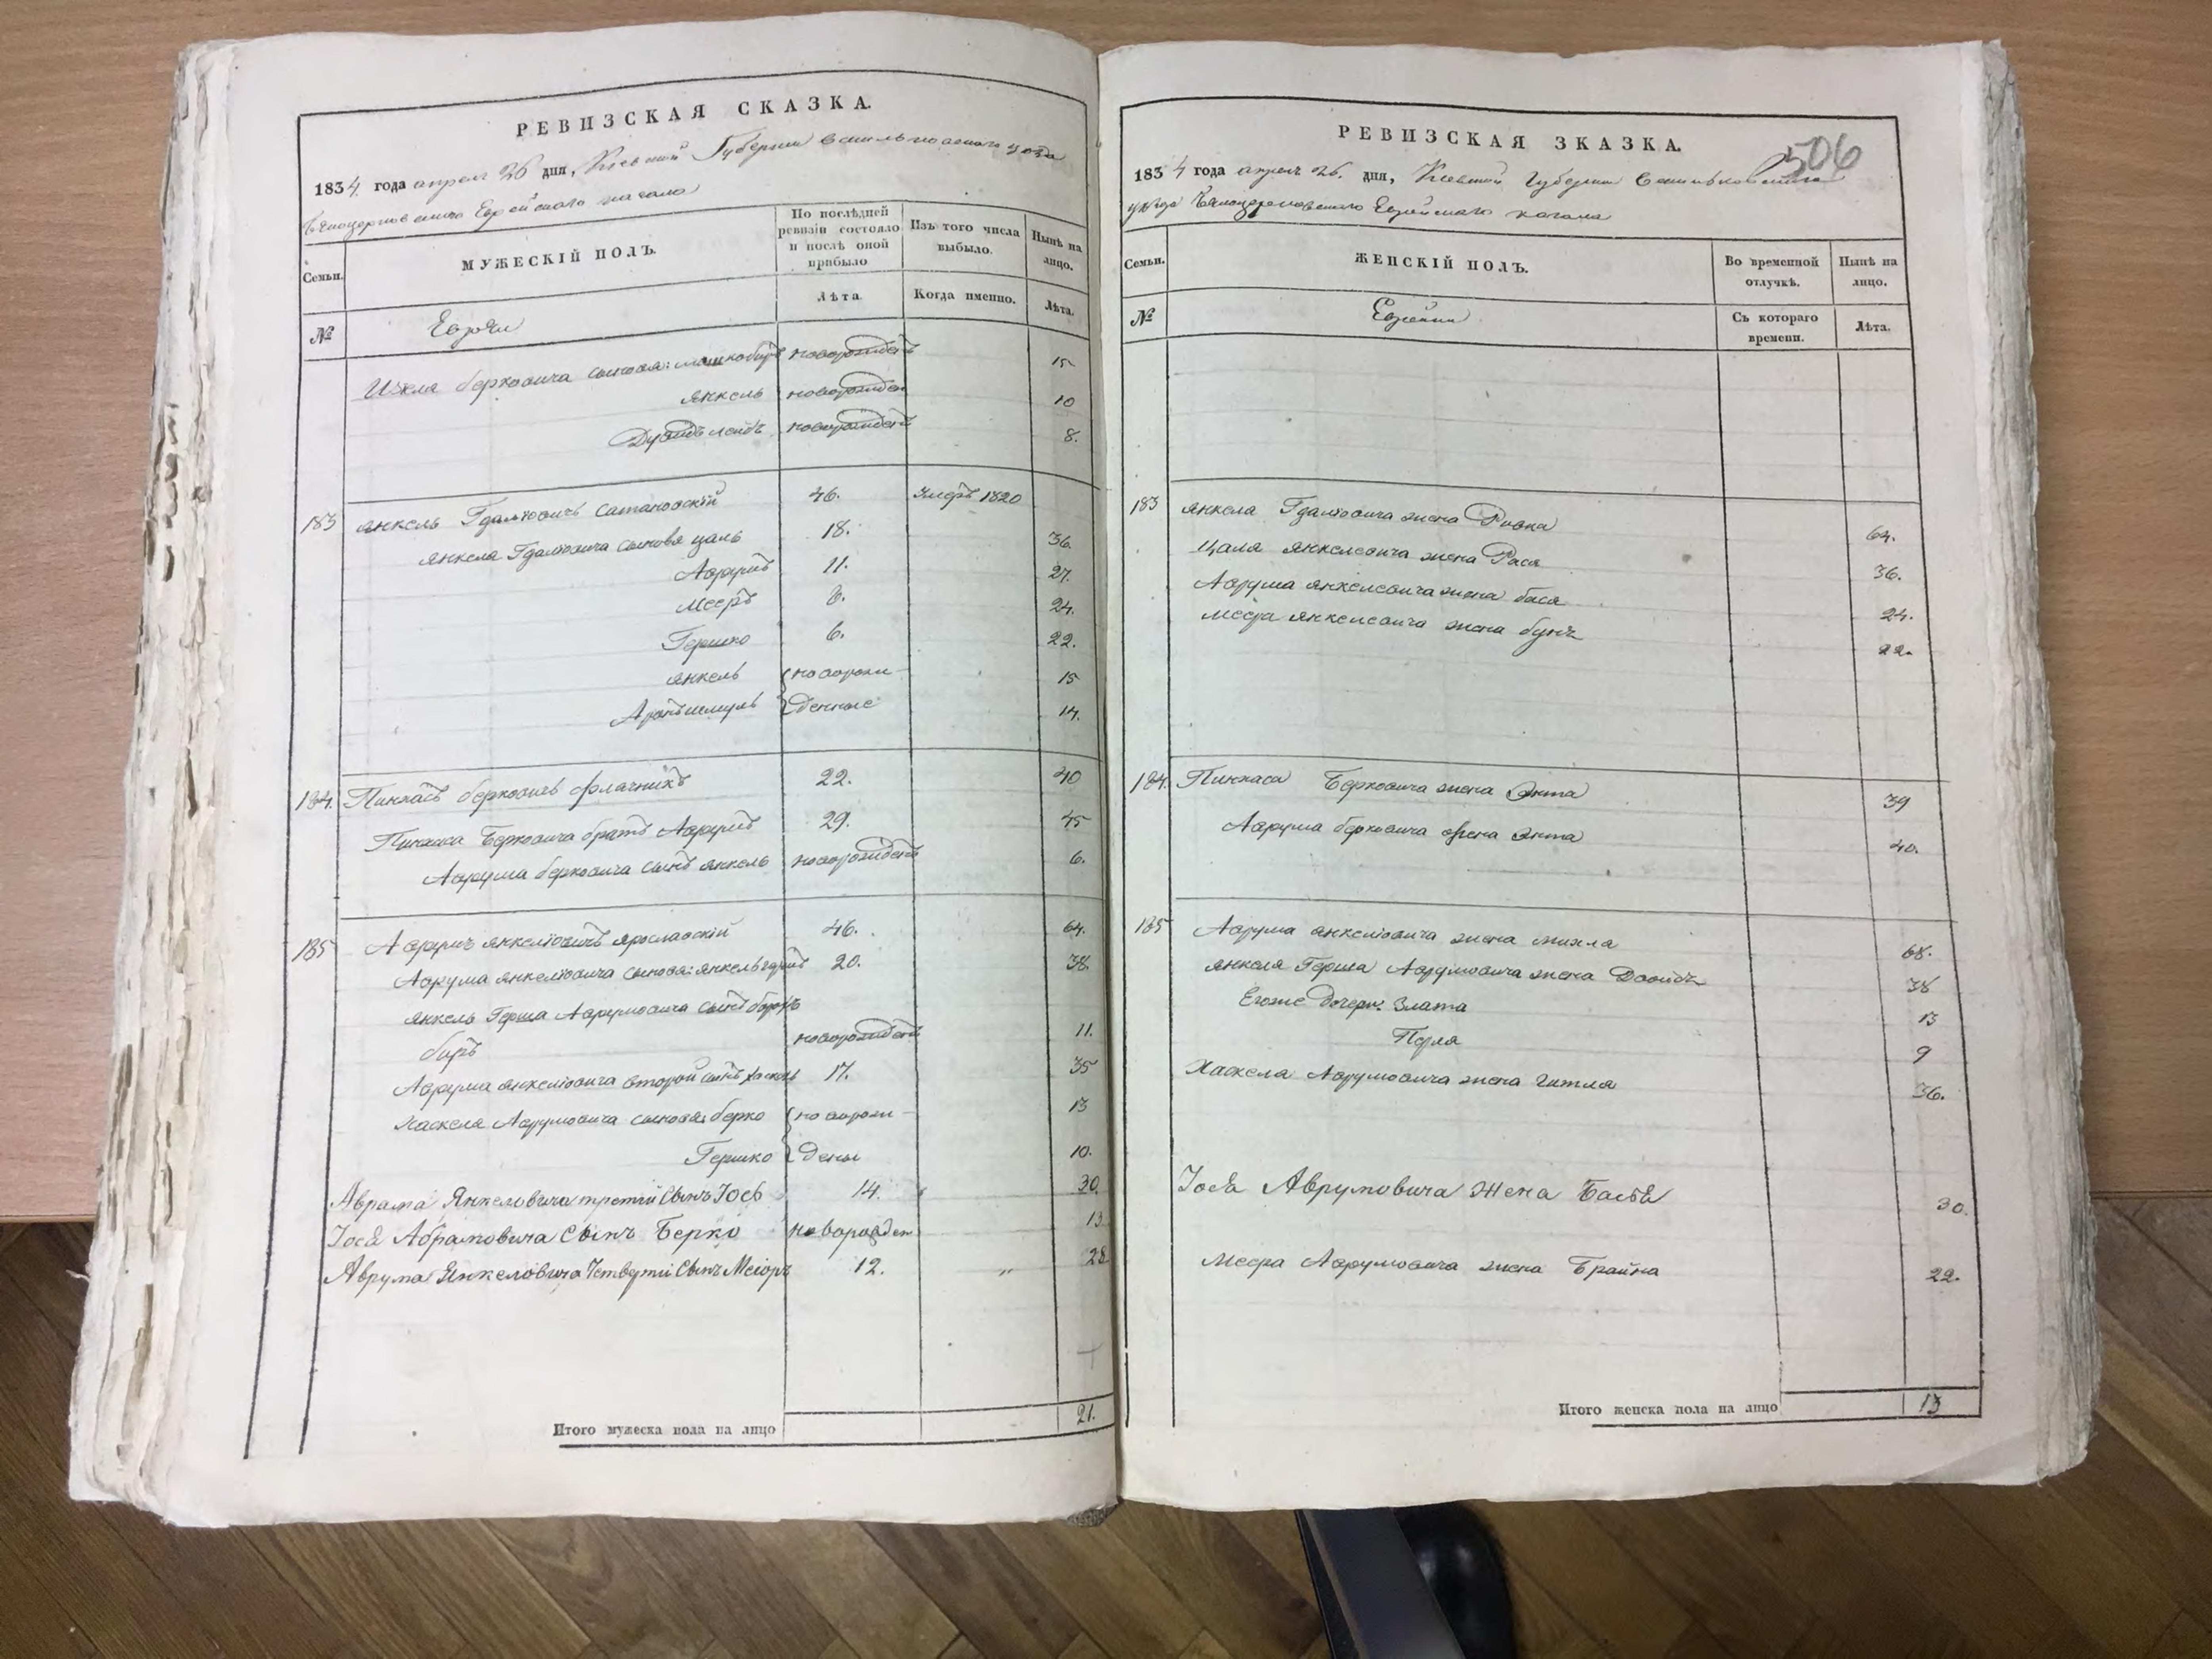 РЕВИЗСКАЯ СКАЗКА.
1834 года апреля 26 дня, Киевской Губернии Васильковского уезда
Белоцерковского Еврейского кагала
Семьи.
МУЖЕСКІЙ ПОЛЪ.
По послѣдней ревизіи состояло и послѣ оной прибыло
Изъ того числа выбыло.
Нынѣ на лицо.
№
Евреи
Лѣта.
Когда именно.
Лѣта.
Ицкла берковича сыновя: мошкобиръ новорожденъ 15
янкель новорожден 10
Дувидъ лейбъ новорожденъ 8.
183 янкель Гдалювичъ Сатановскій 46. Умеръ 1820
янкеля Гдалювича сыновя цаль 18. 36.
Аврумъ 11. 27.
Мееръ 8. 24.
Гершко 6. 22.
янкель новорож- 15
Аронъ шмуль денные 14.
184. Пинхасъ берковичъ флачникъ 22. 40
Пинхаса Берковича братъ Аврумъ 29. 45
Аврума берковича сынъ янкель новорожденъ 6.
185 Аврумъ янкелювичъ ярославскій 46. 64.
Аврума янкелювича сыновя: янкель гершъ 20. 38.
янкель Герша Аврумовича сынъ
биръ новорожденъ 11.
Аврума янкелювича второй сынъ хаскель 17. 35
Хаскеля Аврумовича сыновя: берко новорож- 13
Гершко дены 10.
Аврама Янкеловича третий Сынъ Іосъ 14. 30.
Іося Абрамовича Сынъ Берко новорожден 13.
Аврума Янкеловича Четвертий Сынъ Меіоръ 12. " 28
Итого мужеска пола на лицо 21.
РЕВИЗСКАЯ ЗКАЗКА.
506
1834 года апреля 26. дня, Киевской Губернии Васильковского
уезда Белоцерковского Еврейского кагала
Семьи.
ЖЕНСКІЙ ПОЛЪ.
Во временной отлучкѣ.
Нынѣ на лицо.
№
Еврейки
Съ котораго времени.
Лѣта.
183 янкеля Гдалювича жена Ривка 64.
Цаля янкелевича жена Рася 36.
Аврума янкелевича жена бася 24.
Меера янкелевича жена бунъ 22.
184. Пинхаса Берковича жена Энта 39
Аврума берковича жена Энта 40.
185 Аврума янкелювича жена михля 68.
янкеля Герша Аврумовича жена Двойдъ 38
Егоже дочери: Злата 13
Перля 9
Хаскеля Аврумовича жена Гитля 36.
Іося Аврумовича Жена Бася 30.
Меера Аврумовича жена Брайна 22.
Итого женска пола на лицо 13